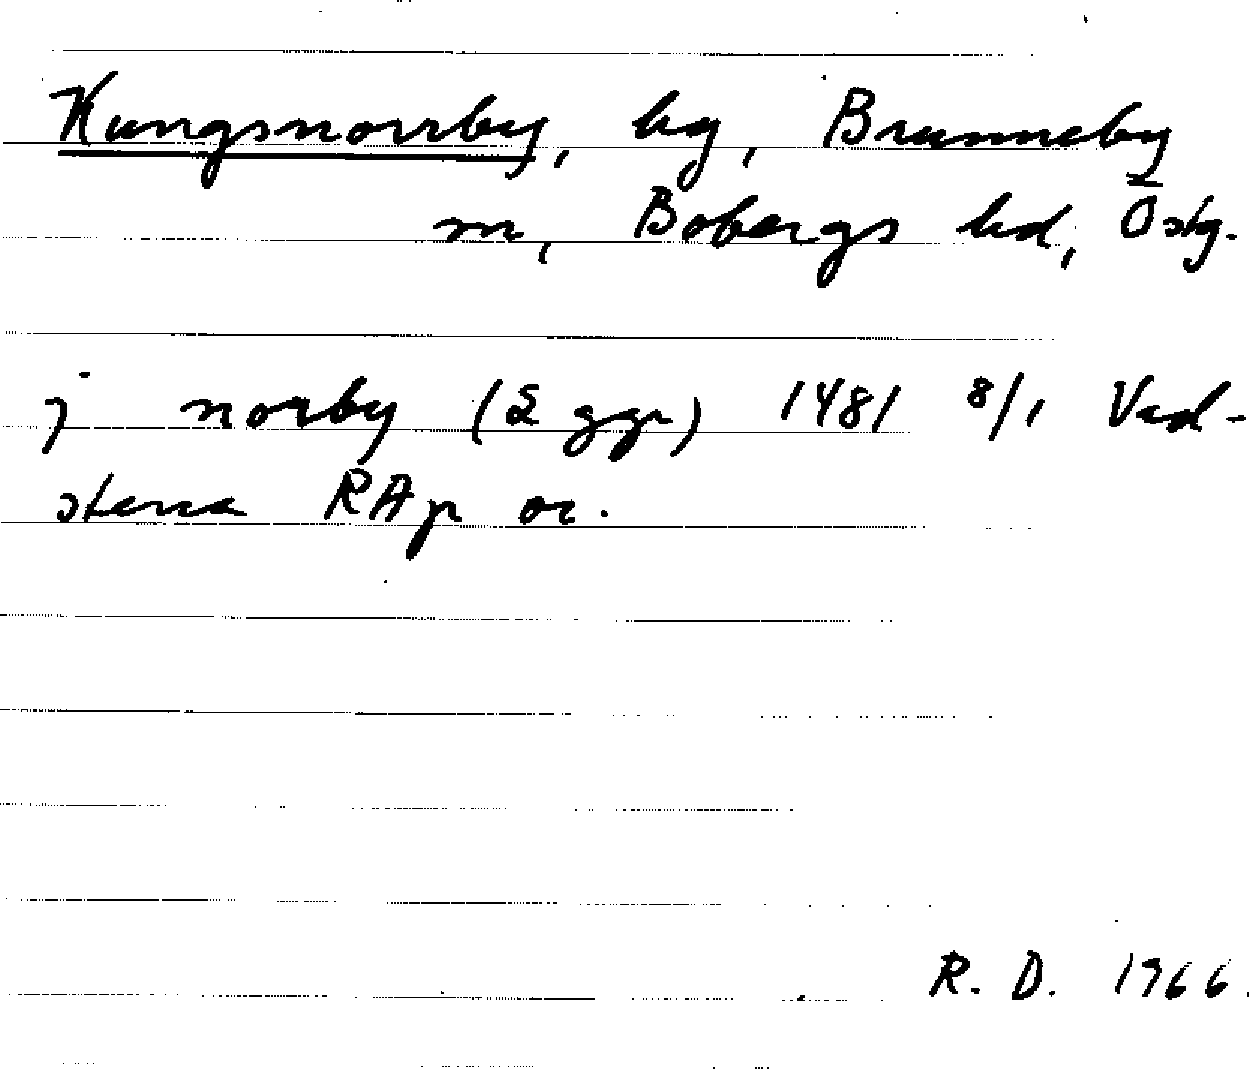 Kungsnorrby, by, Brunneby
sn, Bobergs hd, Östg.
j norby (2 ggr) 1481 8/1 Vad-
stena RAp or.
R. D. 1966.